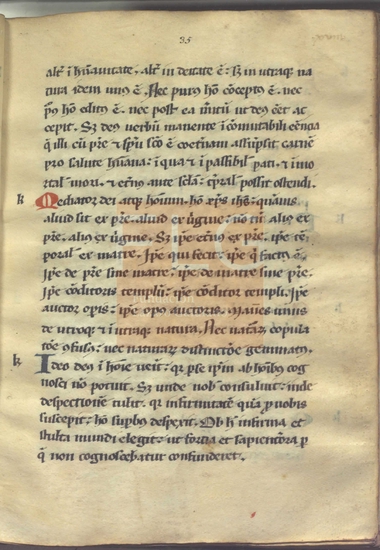 35
alt̄ ī hūanitate, alt̄ in deitate ē: sꝫ in utraqꝫ na
tura idem unus ē. Nec purus hō cōceptus ē. nec
pur̄ hō editus ē. nec post ea ut deus eēt ac
cepit. Sꝫ deus uerbū manente īcōmutabili eēncia
q̄ illi cū pr̄e ⁊ spū scō ē coet̄na assūpsit carnē
pro salute hūana: ī qua ⁊ īpassibil̓ pati. ⁊ īmo
rtal̓ mori. ⁊ et̄nus ante scl̄a: tp̄ral̓ possit ostendi.
k Mediator dei atqꝫ hoīum. hō xp̄s ih̄s: quāuis
aliud sit ex pr̄e. aliud ex ūgine: nō tn̄ alius ex
pr̄e. alius ex ūgine. Sꝫ ip̄e et̄nus ex pr̄e. ip̄e tē
poral̓ ex matre. Ip̄e qui fecit: ip̄e q̄ factus ē.
Ip̄e de pr̄e sine matre. ip̄e de matre sine pr̄e.
Ip̄e cōditoris templū: ip̄e cōditor templi. Ip̄e
auctor op̄is: ip̄e opus auctoris. Manēs unus
de utroqꝫ ⁊ ī utraqꝫ natura. Nec naturarꝫ copula
tōe ꝯfusus: nec naturarꝫ distinctōe geminatus.
k Ideo deus ī hoīe uenit: qꝛ per se ip̄m ab hoībus cog
nosci nō potuit. Sꝫ unde nob̄ consuluit: inde
despectionē tulit. qꝛ infirmitatē quā ꝓ nobis
suscepit: hō supbus despexit. Ob h̄ infirma et
stulta mundi elegit: ut fortia et sapientiora ꝑ
q̄ non cognoscebatur confunderet.